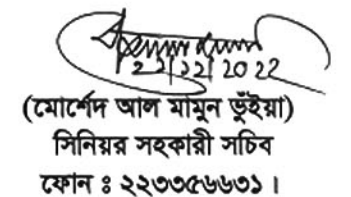 22/12/2022
(মোর্শেদ আল মামুন ভুঁইয়া)
সিনিয়র সহকারী সচিব
ফোন ঃ ২২৩৩৫৬৬৩১ ।